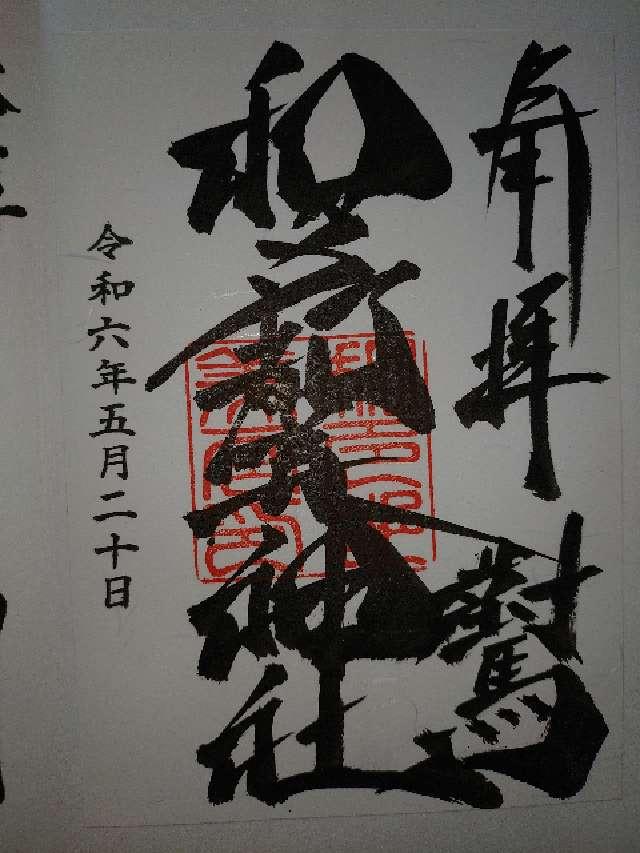 奉拝 對馬
和多都美神社
令和六年五月二十日